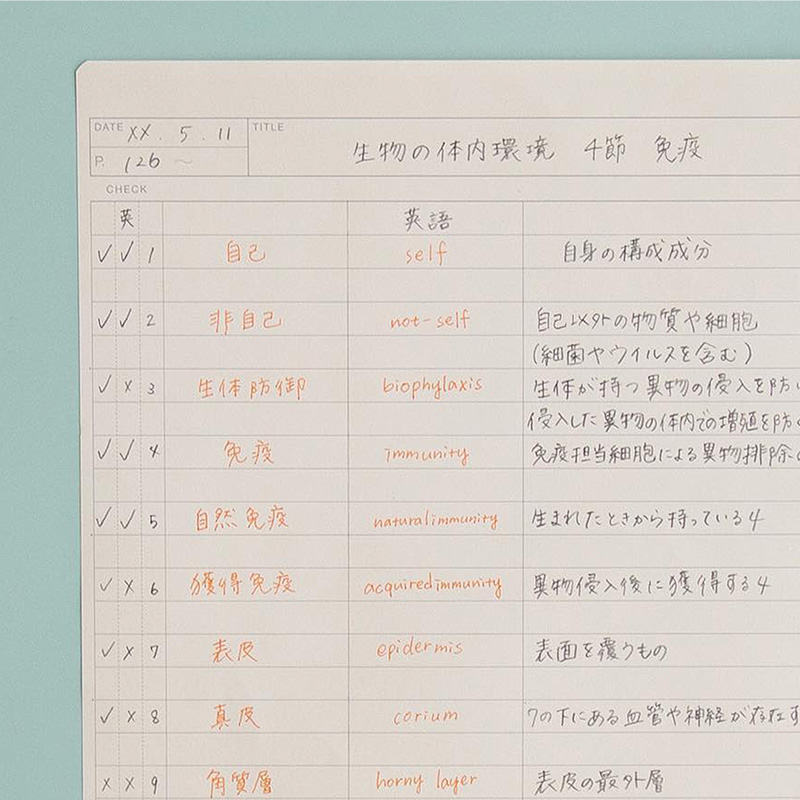 DATE XX. 5. 11 TITLE 生物の体内環境 4節 免疫
P. 126 ~
CHECK
英 英語
✓ ✓ 1 自己 self 自身の構成成分
✓ ✓ 2 非自己 not-self 自己以外の物質や細胞
(細菌やウイルスを含む)
✓ × 3 生体防御 biophylaxis 生体が持つ異物の侵入を防
侵入した異物の体内での増殖を防
✓ ✓ 4 免疫 immunity 免疫担当細胞による異物排除
✓ ✓ 5 自然免疫 naturalimmunity 生まれたときから持っている4
✓ × 6 獲得免疫 acquiredimmunity 異物侵入後に獲得する4
✓ × 7 表皮 epidermis 表面を覆うもの
✓ × 8 真皮 corium 7の下にある血管や神経が存在す
× × 9 角質層 horny layer 表皮の最外層